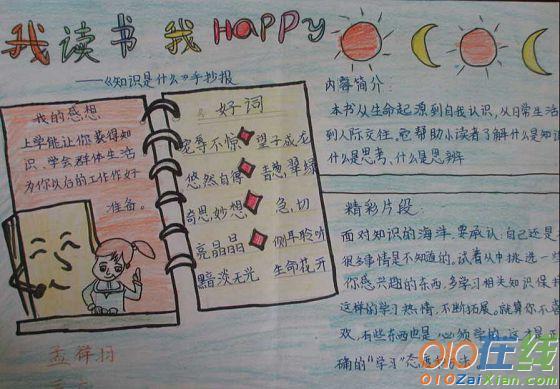 我读书 我 HAPPY
——《知识是什么》手抄报
我的感想
上学能让你获得知
识、学会群体生活
为你以后的工作作好
准备。
好词
宠辱不惊 望子成龙
悠然自得 青葱翠绿
奇思妙想 急切
亮晶晶 侧耳聆听
黯淡无光 生命花开
内容简介:
本书从生命起源到自我认识,从日常生活
到人际交往。它帮助小读者了解什么是知识
什么是思考、什么是思辨
精彩片段:
面对知识的海洋,要承认,自己还是
很多事情是不知道的,试着从中挑选一些
你感兴趣的东西,多学习相关知识保持
这样的学习热情,不断拓展。就算你不喜
欢,有些东西也是必须学的,这才是正
确的“学习”态度
010在线
010ZaiXian.com